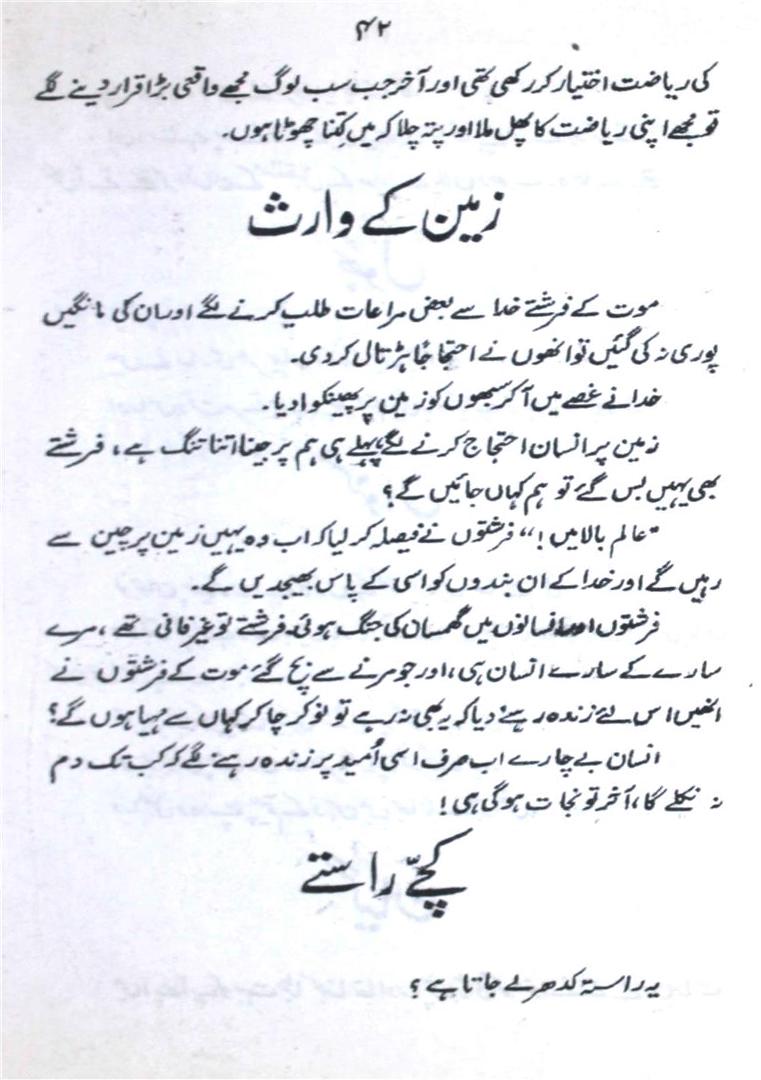 ۴۲
کی ریاضت اختیار کر رکھی تھی اور آخر جب سب لوگ مجھے واقعی بڑا قرار دینے لگے
تو مجھے اپنی ریاضت کا پھل ملا اور پتہ چلا کہ میں کتنا چھوٹا ہوں۔
زمین کے وارث
موت کے فرشتے خدا سے بعض مراعات طلب کرنے لگے اور ان کی مانگیں
پوری نہ کی گئیں تو انھوں نے احتجاجاً ہڑتال کر دی۔
خدا نے غصے میں آ کر سبھوں کو زمین پر پھینکوا دیا۔
زمین پر انسان احتجاج کرنے لگے، پہلے ہی ہم پر جینا اتنا تنگ ہے، فرشتے
بھی یہیں بس گئے تو ہم کہاں جائیں گے؟
"عالم بالا میں!" فرشتوں نے فیصلہ کر لیا کہ اب وہ یہیں زمین پر چین سے
رہیں گے اور خدا کے ان بندوں کو اسی کے پاس بھیجدیں گے۔
فرشتوں اور انسانوں میں گھمسان کی جنگ ہوئی۔ فرشتے تو غیر فانی تھے، مرے
سارے کے سارے انسان ہی، اور جو مرنے سے بچ گئے موت کے فرشتوں نے
انھیں اس لئے زندہ رہنے دیا کہ یہ بھی نہ رہے تو نوکر چاکر کہاں سے مہیا ہوں گے؟
انسان بے چارے اب صرف اسی اُمید پر زندہ رہنے لگے کہ کب تک دم
نہ نکلے گا، آخر تو نجات ہوگی ہی!
کچّے راستے
یہ راستہ کدھر لے جاتا ہے؟